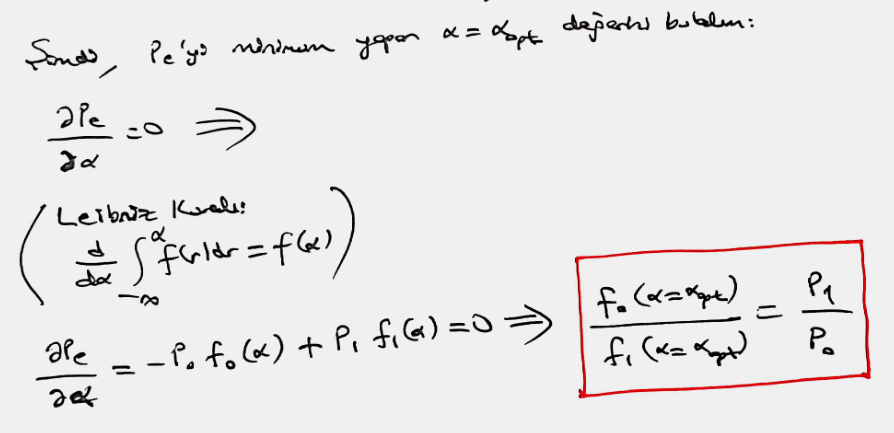 Şimdi, Pe'yi minimum yapan α = α_opt değerini bulalım:
∂Pe/∂α = 0 ⟹
(Leibniz Kuralı:
d/dα ∫_{-∞}^{α} f(r)dr = f(α))
∂Pe/∂α = -P₀ f₀(α) + P₁ f₁(α) = 0 ⟹ f₀(α=α_opt)/f₁(α=α_opt) = P₁/P₀